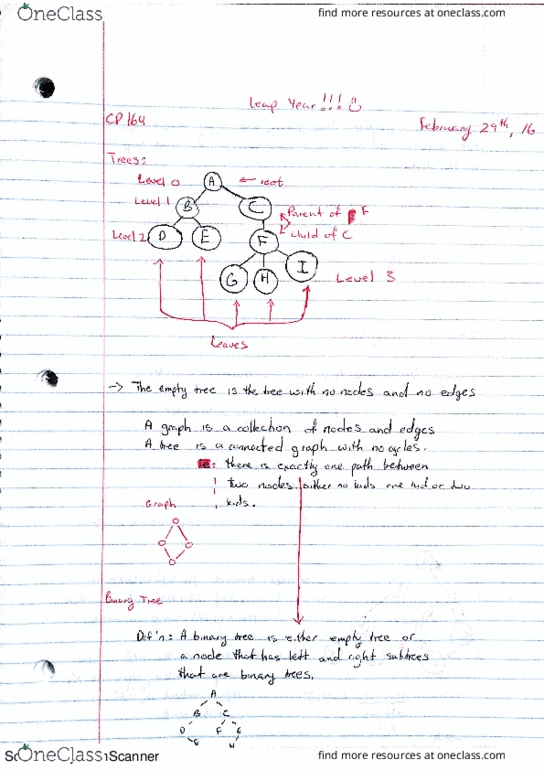 OneClass
find more resources at oneclass.com
Leap Year!!!
CP164
February 29th, 16
Trees:
Level 0
A
← root
Level 1
B
C
Parent of F
child of C
Level 2
D
E
F
G
H
I
Level 3
Leaves
-> The empty tree is the tree with no nodes and no edges
A graph is a collection of nodes and edges
A tree is a connected graph with no cycles.
ie: there is exactly one path between
two nodes. either no kids one kid or two
kids.
Graph
Binary Tree
Def'n: A binary tree is either empty tree or
a node that has left and right subtrees
that are binary trees.
A
B C
D F
H
OneClass
Scanner
find more resources at oneclass.com